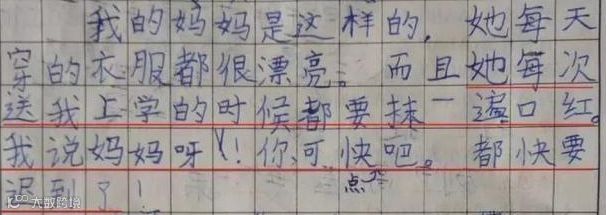 我的妈妈是这样的，她每天
穿的衣服都很漂亮。而且她每次
送我上学的时候都要抹一遍口红。
我说妈妈呀！你可快点吧。都快要
迟到了！
大数跨境